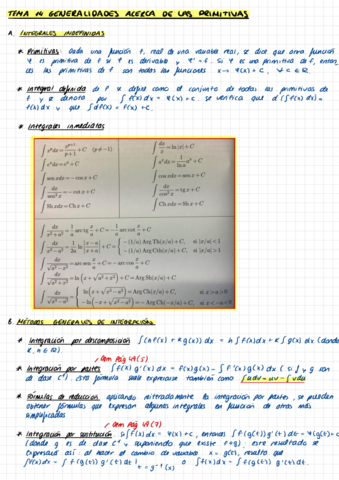 TEMA 14 GENERALIDADES ACERCA DE LAS PRIMITIVAS
A. INTEGRALES INDEFINIDAS
* Primitivas: Dada una función f, real de una variable real, se dice que otra función
Ψ es primitiva de f si Ψ es derivable y Ψ' = f. Si Ψ es una primitiva de f, enton
ces las primitivas de f son todas las funciones x → Ψ(x) + C, ∀ C ∈ R.
* Integral definida de f se define como el conjunto de todas las primitivas de
f y se denota por ∫ f(x) dx = Ψ(x) + C. Se verifica que d(∫ f(x) dx) =
f(x) dx y que ∫ d f(x) = f(x) + C.
* Integrales inmediatas
∫ x^y dx = x^(y+1)/(y+1) + C (y ≠ -1)
∫ dx/x = ln|x| + C
∫ e^x dx = e^x + C
∫ a^x dx = 1/(ln a) a^x + C
∫ sen x dx = -cos x + C
∫ cos x dx = sen x + C
∫ dx/sen² x = -cot x + C
∫ dx/cos² x = tg x + C
∫ Sh x dx = Ch x + C
∫ Ch x dx = Sh x + C
∫ dx/(x²+a²) = 1/a arc tg x/a + C = -1/a arc cot x/a + C
∫ dx/(x²-a²) = 1/2a ln|(x-a)/(x+a)| + C = { -(1/a) Arg Th(x/a) + C, si |x/a| < 1
-(1/a) Arg Cth(x/a) + C, si |x/a| > 1
∫ dx/√(a²-x²) = arc sen x/a + C = -arc cos x/a + C
∫ dx/√(x²+a²) = ln(x + √(x²+a²)) + C = Arg Sh(x/a) + C
∫ dx/√(x²-a²) = { ln(x + √(x²-a²)) + C = Arg Ch(x/a) + C, si x > a > 0
-ln(-x + √(x²-a²)) + C = -Arg Ch(-x/a) + C, si x < -a < 0
B. MÉTODOS GENERALES DE INTEGRACIÓN
* Integración por descomposición ∫ (h f(x) + k g(x)) dx = h ∫ f(x) dx + k ∫ g(x) dx (donde
h, k ∈ R)
→ Dem pág 49 (5)
* Integración por partes ∫ f(x) g'(x) dx = f(x) g(x) - ∫ f'(x) g(x) dx (si f y g son
de clase C¹). Esta fórmula suele expresarse también como ∫ u dv = uv - ∫ v du
* Fórmulas de reducción aplicando reiteradamente la integración por partes, se pueden
obtener fórmulas que expresan algunas integrales en función de otras más
simplificadas
→ Dem pág 49 (7)
* Integración por sustitución Si ∫ f(x) dx = Ψ(x) + C, entonces ∫ f(g(t)) g'(t) dt = Ψ(g(t)) + C
(donde g es de clase C¹ y suponiendo que existe f∘g). Este resultado se
expresará así: al hacer el cambio de variable x = g(t), resulta que
∫ f(x) dx = ∫ f(g(t)) g'(t) dt |t = g⁻¹(x) o ∫ f(x) dx = ∫ f(g(t)) g'(t) dt.